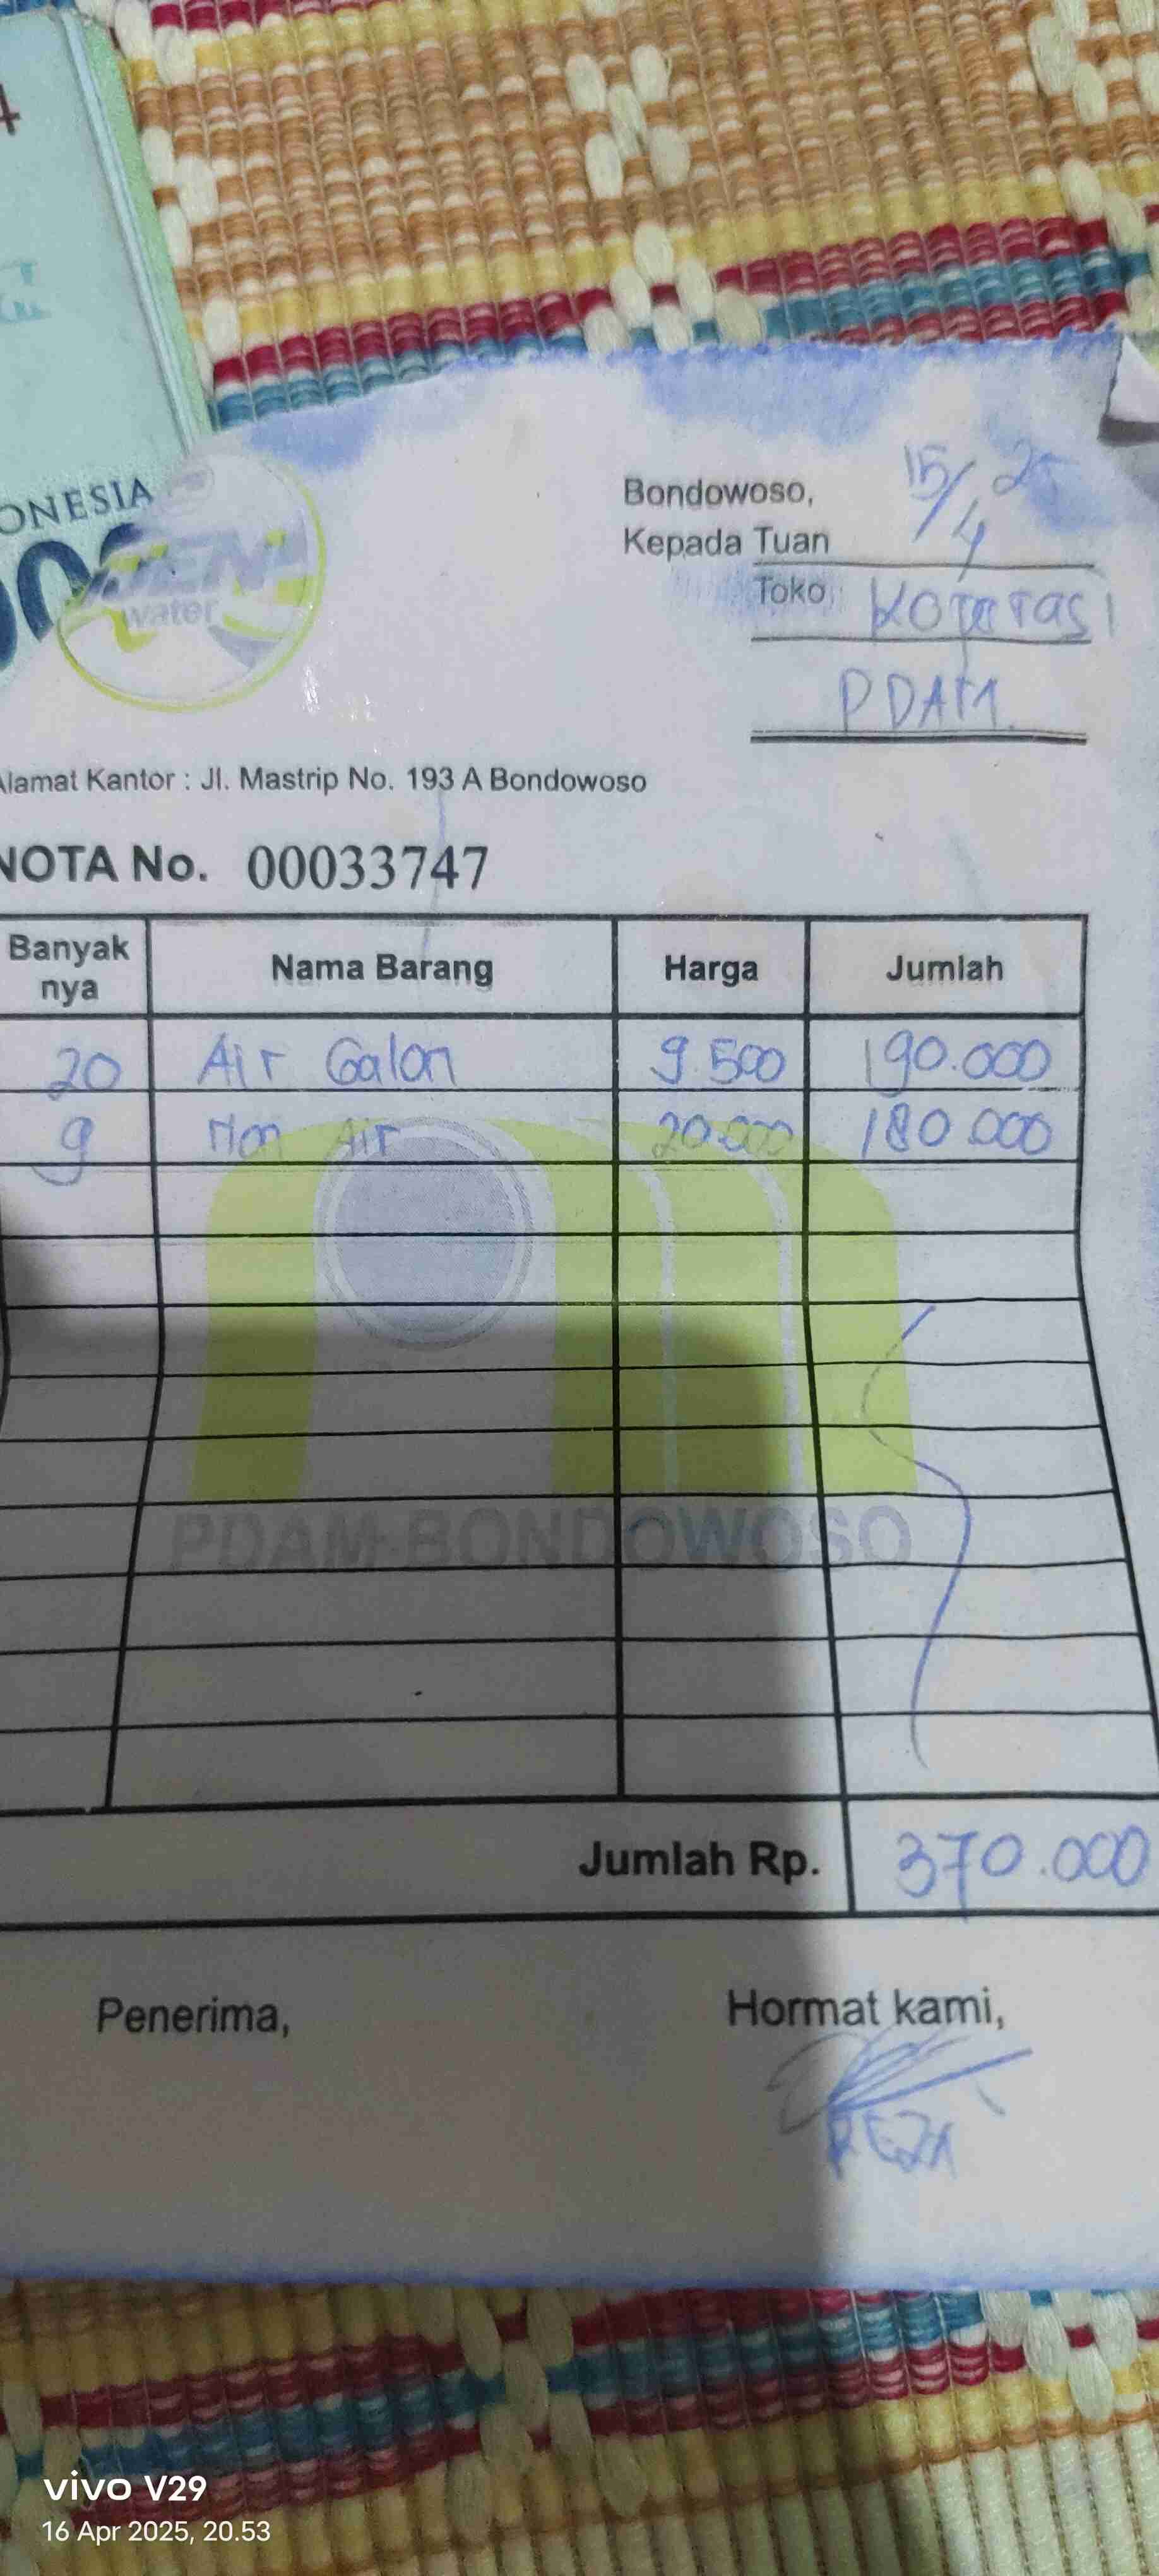 ONESIA
water
Bondowoso, 15/4 25
Kepada Tuan
Toko
PDAM
Alamat Kantor : Jl. Mastrip No. 193 A Bondowoso
NOTA No. 00033747
Banyak nya Nama Barang Harga Jumlah
20 Air Galon 9.500 190.000
9 Non Air 20.000 180.000
PDAM-BONDOWOSO
Jumlah Rp. 370.000
Penerima, Hormat kami,
REZA
vivo V29
16 Apr 2025, 20.53